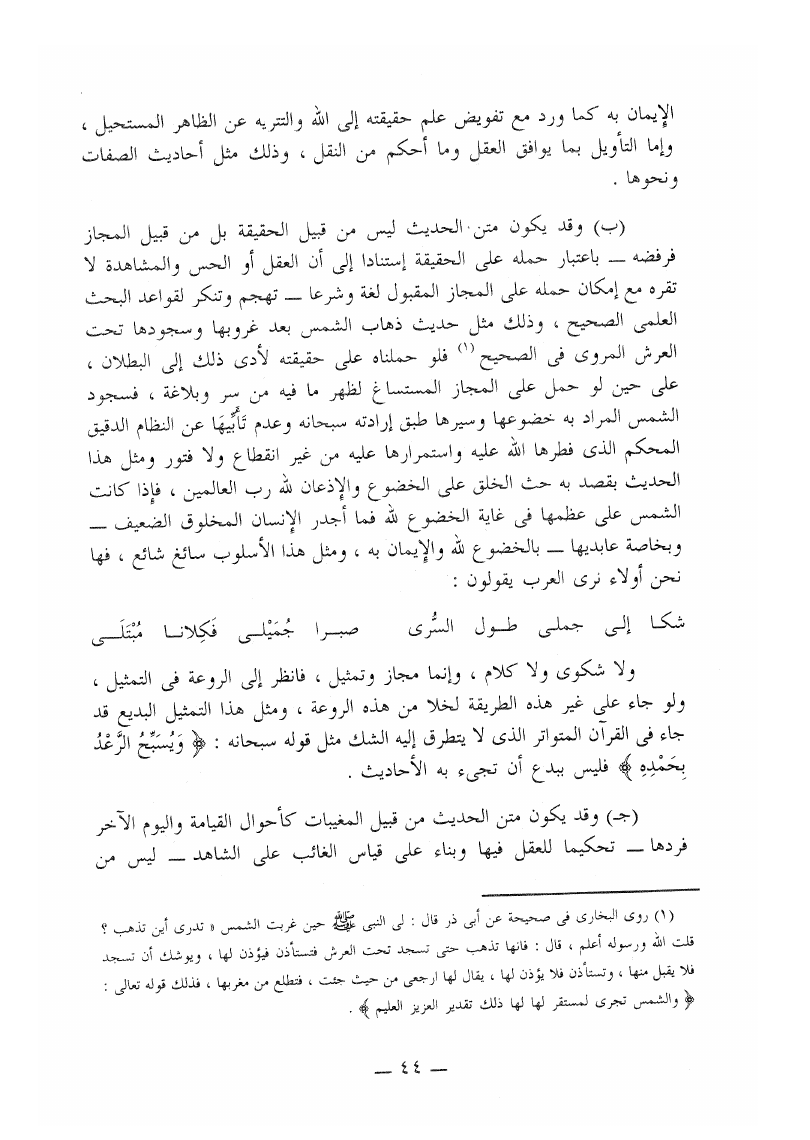 الإيمان به كما ورد مع تفويض علم حقيقته إلى الله والتتريه عن الظاهر المستحيل ،
وإما التأويل بما يوافق العقل وما أحكم من النقل ، وذلك مثل أحاديث الصفات
ونحوها .
(ب) وقد يكون متن الحديث ليس من قبيل الحقيقة بل من قبيل المجاز
فرفضه — باعتبار حمله على الحقيقة إستنادا إلى أن العقل أو الحس والمشاهدة لا
تقره مع إمكان حمله على المجاز المقبول لغة وشرعا — تهجم وتنكر لقواعد البحث
العلمى الصحيح ، وذلك مثل حديث ذهاب الشمس بعد غروبها وسجودها تحت
العرش المروى فى الصحيح (١) فلو حملناه على حقيقته لأدى ذلك إلى البطلان ،
على حين لو حمل على المجاز المستساغ لظهر ما فيه من سر وبلاغة ، فسجود
الشمس المراد به خضوعها وسيرها طبق إرادته سبحانه وعدم تَأَبِّيهَا عن النظام الدقيق
المحكم الذى فطرها الله عليه واستمرارها عليه من غير انقطاع ولا فتور ومثل هذا
الحديث بقصد به حث الخلق على الخضوع والإذعان لله رب العالمين ، فإذا كانت
الشمس على عظمها فى غاية الخضوع لله فما أجدر الإنسان المخلوق الضعيف —
وبخاصة عابديها — بالخضوع لله والإيمان به ، ومثل هذا الأسلوب سائغ شائع ، فها
نحن أولاء نرى العرب يقولون :
شكا إلى جملى طول السُّرى صبرا جُمَيْلى فَكِلانا مُبْتَلَى
ولا شكوى ولا كلام ، وإنما مجاز وتمثيل ، فانظر إلى الروعة فى التمثيل ،
ولو جاء على غير هذه الطريقة لخلا من هذه الروعة ، ومثل هذا التمثيل البديع قد
جاء فى القرآن المتواتر الذى لا يتطرق إليه الشك مثل قوله سبحانه : ﴿ وَيُسَبِّحُ الرَّعْدُ
بِحَمْدِهِ ﴾ فليس ببدع أن تجىء به الأحاديث .
(جـ) وقد يكون متن الحديث من قبيل المغيبات كأحوال القيامة واليوم الآخر
فردها — تحكيما للعقل فيها وبناء على قياس الغائب على الشاهد — ليس من
(١) روى البخارى فى صحيحة عن أبى ذر قال : لى النبى ﷺ حين غربت الشمس « تدرى أين تذهب ؟
قلت الله ورسوله أعلم ، قال : فانها تذهب حتى تسجد تحت العرش فتستأذن فيؤذن لها ، ويوشك أن تسجد
فلا يقبل منها ، وتستأذن فلا يؤذن لها ، يقال لها ارجعى من حيث جئت ، فتطلع من مغربها ، فذلك قوله تعالى :
﴿ والشمس تجرى لمستقر لها لها ذلك تقدير العزيز العليم ﴾ .
— ٤٤ —